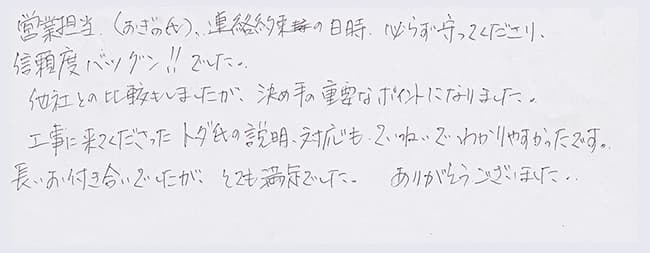 営業担当、(おぎの氏)、連絡約束の日時、必ず守ってくださり、
信頼度バツグン!!でした。
他社との比較もしましたが、決め手の重要なポイントになりました。
工事に来てくださったトダ氏の説明、対応も、ていねいでわかりやすかったです。
長いお付き合いでしたが、とても満足でした。 ありがとうございました。